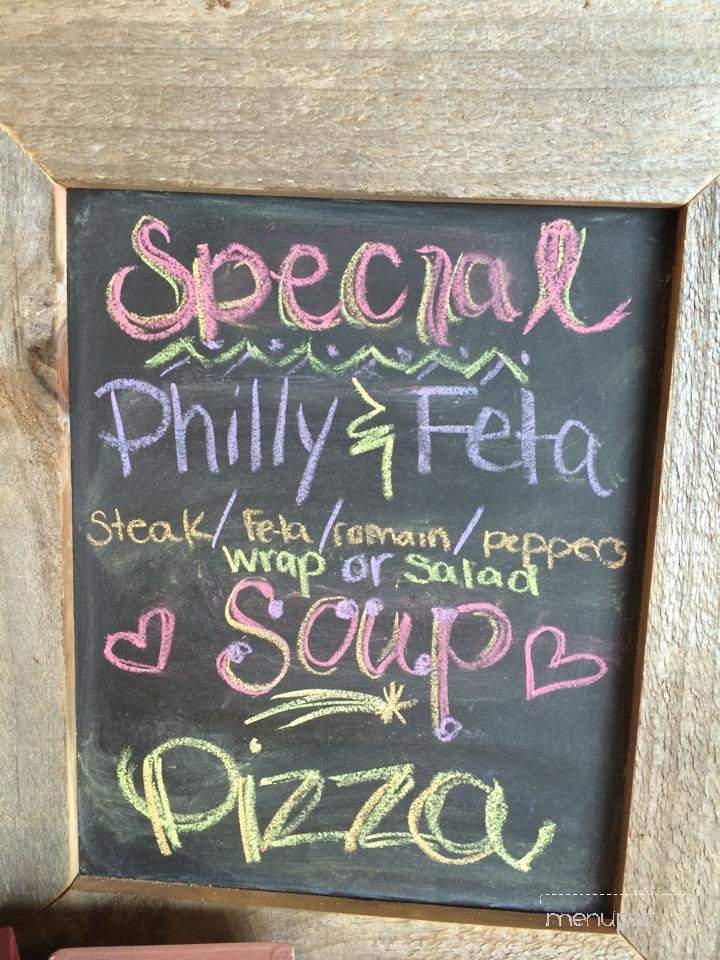 Special
Philly & Feta
Steak/Feta/romain/peppers
wrap or salad
Soup
Pizza